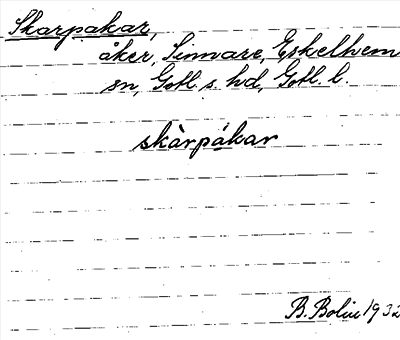 Skarpakar,
åker, Sinnare, Eskelhem
sn, Gotl. s. hd, Gotl. l.
skàrpákar
B. Bolin 1932